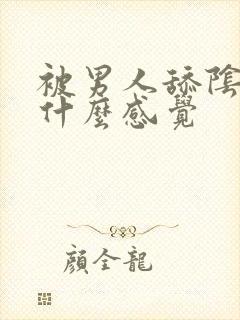 被男人舔陰
什麼感覺
顏全龍